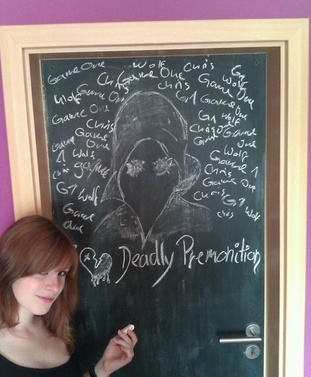 Game One
Wolf
Chris
G1
Game One
Chris
Game One
Wolf
Game One
Chris
Game One
Wolf
G1
Game One
Game One
G1 Wolf
Chris
Chris
Game One
Game One
Wolf
1 Wolf
Game 1
Chris
Chris
Game One
G1 Wolf
G1 Wolf
Game One
Chris
Deadly Premonition